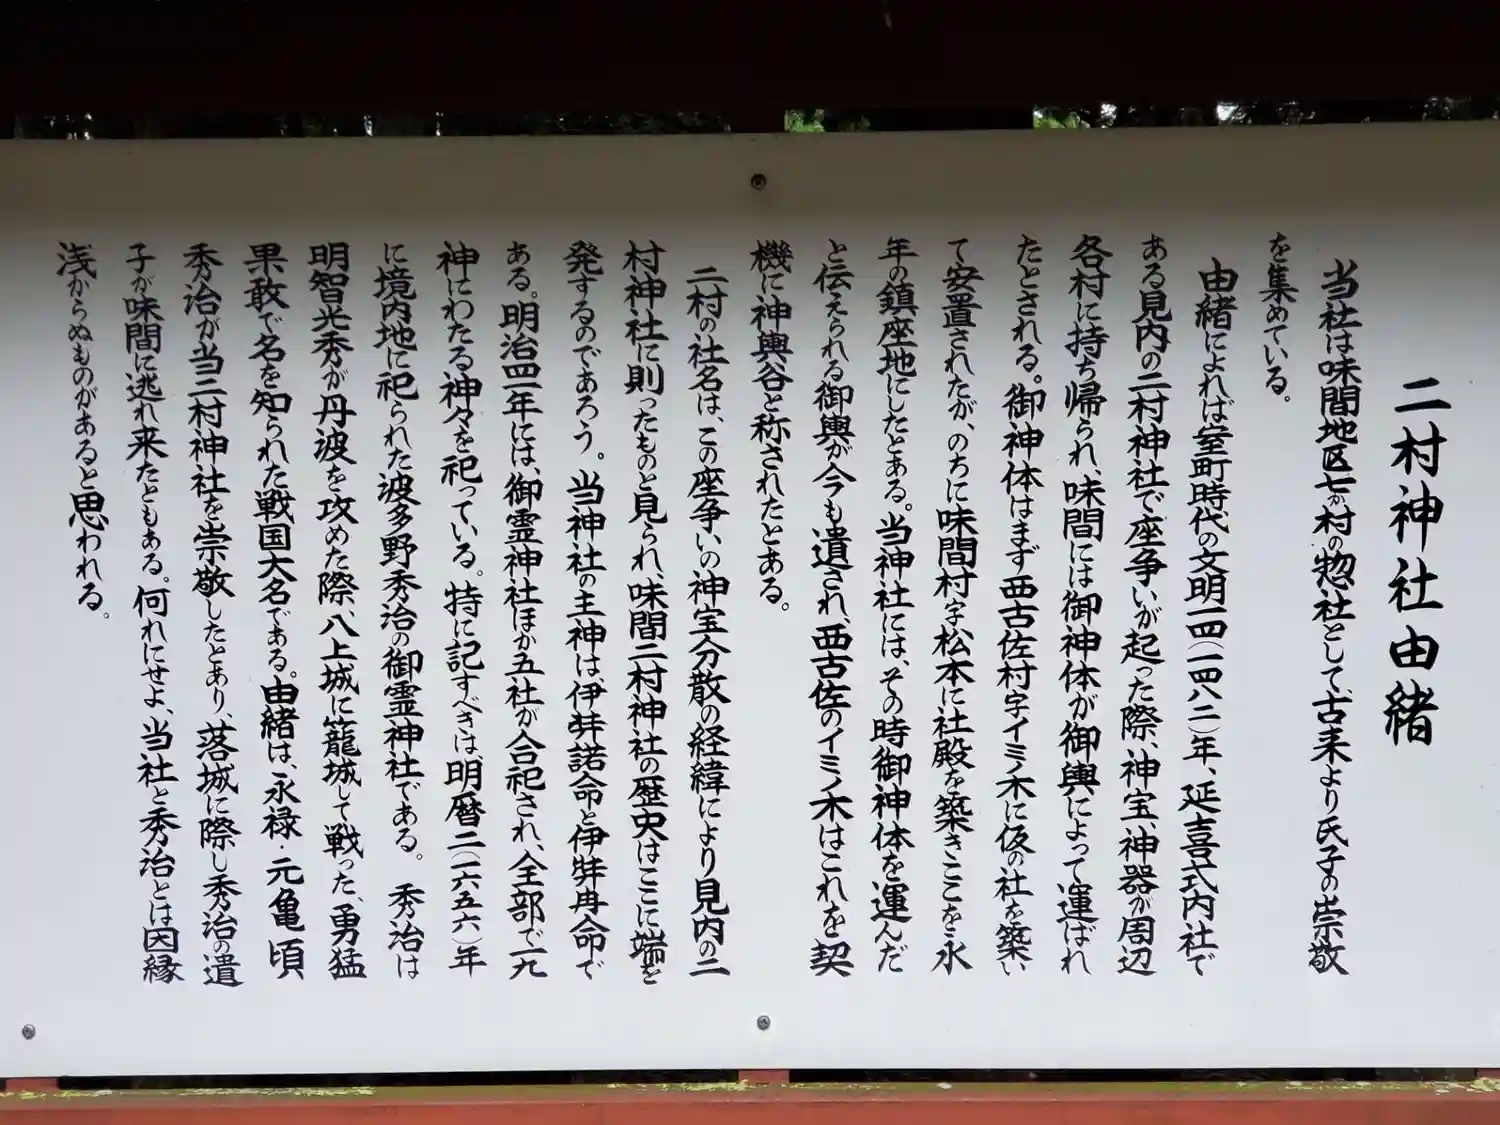 二村神社由緒
当社は味間地区七か村の惣社として、古来より氏子の崇敬
を集めている。
由緒によれば室町時代の文明一四（一四八二）年、延喜式内社で
ある見内の二村神社で座争いが起った際、神宝、神器が周辺
各村に持ち帰られ、味間には御神体が御輿によって運ばれ
たとされる。御神体はまず西古佐村字イミノ木に仮の社を築い
て安置されたが、のちに味間村字松本に社殿を築きここを永
年の鎮座地にしたとある。当神社には、その時御神体を運んだ
と伝えられる御輿が今も遺され、西古佐のイミノ木はこれを契
機に神輿谷と称されたとある。
二村の社名は、この座争いの神宝分散の経緯により見内の二
村神社に則ったものと見られ、味間二村神社の歴史はここに端を
発するのであろう。当神社の主神は、伊弉諾命と伊弉冉命で
ある。明治四一年には、御霊神社ほか五社が合祀され、全部で一九
神にわたる神々を祀っている。特に記すべきは、明暦二（一六五六）年
に境内地に祀られた波多野秀治の御霊神社である。秀治は
明智光秀が丹波を攻めた際、八上城に籠城して戦った、勇猛
果敢で名を知られた戦国大名である。由緒は、永禄・元亀頃
秀治が当二村神社を崇敬したとあり、落城に際し秀治の遺
子が味間に逃れ来たともある。何れにせよ、当社と秀治とは因縁
浅からぬものがあると思われる。